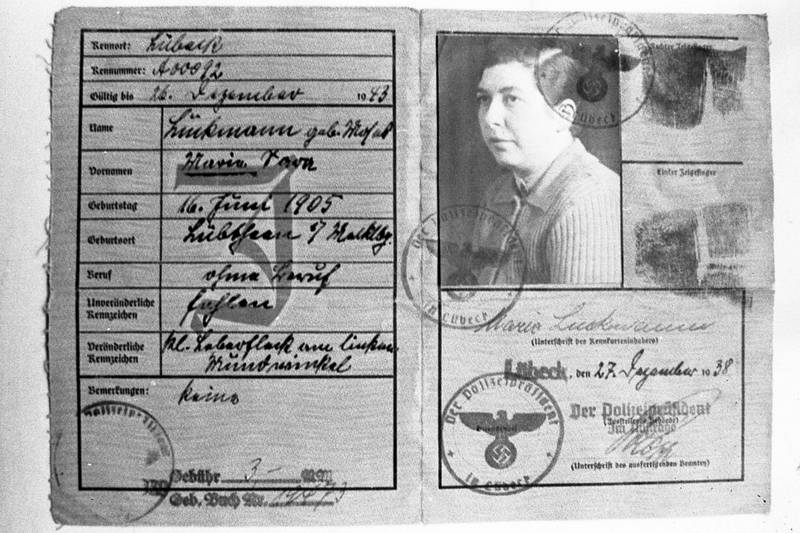 Kennort: Lübeck
Kennummer: A00092
Gültig bis 26. Dezember 1943
Name Lückmann geb.
Vornamen Marie Sara
J
Geburtstag 16. Juni 1905
Geburtsort Lübtheen i/ Mecklbg.
Beruf ohne Beruf
Unveränderliche Kennzeichen fehlen
Veränderliche Kennzeichen kl. Leberfleck am linken
Mundwinkel
Bemerkungen: keine
Der Polizeipräsident
Gebühr 3,- RM
Geb. Buch Nr.
Der Polizeipräsident
in Lübeck
Rechter Zeigefinger
Linker Zeigefinger
Der Polizeipräsident
in Lübeck
Marie Lückmann
(Unterschrift des Kennkarteninhabers)
Lübeck, den 27. Dezember 1938
Der Polizeipräsident
(Ausstellende Behörde)
Im Auftrage
(Unterschrift des ausfertigenden Beamten)
Der Polizeipräsident
in Lübeck